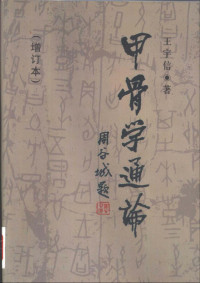 王宇信 著
甲骨学通論
(增订本)
周谷城题